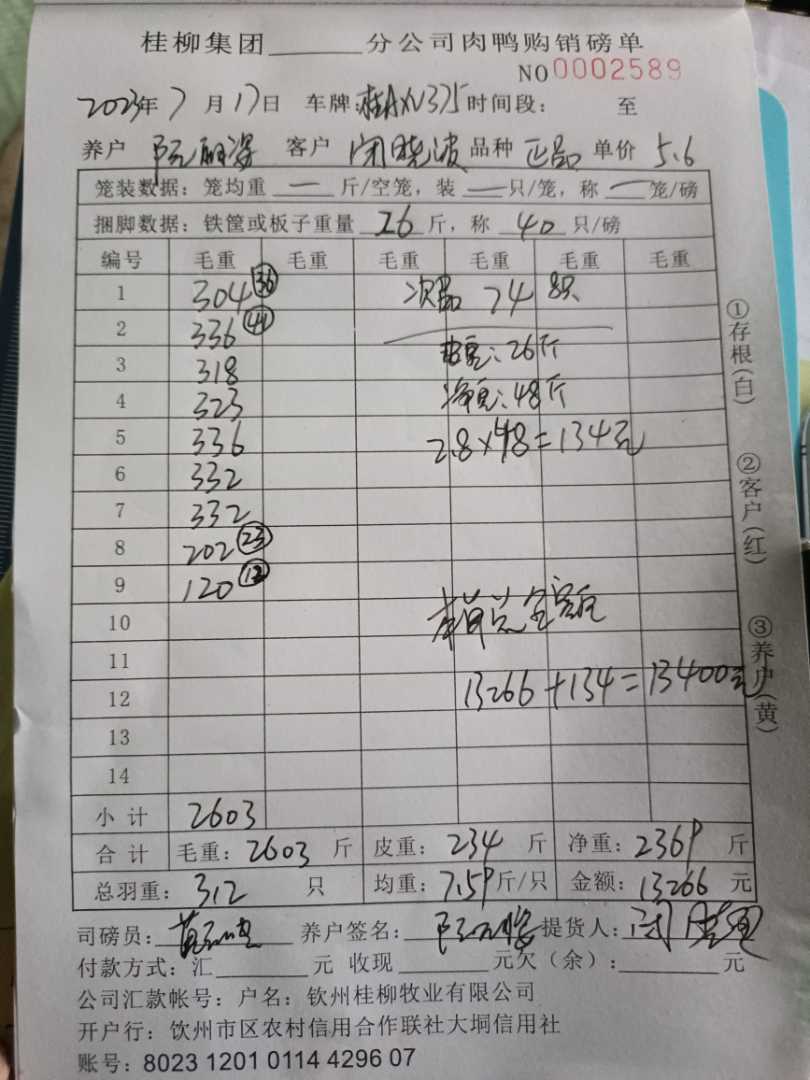 桂柳集团______分公司肉鸭购销磅单
NO 0002589
2023年7月17日 车牌:桂AXV375 时间段: 至
养户 客户 闭晓波 品种 正品 单价 5.6
笼装数据:笼均重 — 斤/空笼,装 — 只/笼,称 — 笼/磅
捆脚数据:铁筐或板子重量 26 斤,称 40 只/磅
编号 毛重 毛重 毛重 毛重 毛重 毛重
1 304 (36) 次品 74
2 336 (41)
3 318 皮重:26斤
4 323 净重:48斤
5 336 2.8×48=134元
6 332
7 332
8 202 (23)
9 120 (12)
10
11
12 13266+134=13400元
13
14
小计 2603
合计 毛重:2603斤 皮重:234斤 净重:2369斤
总羽重:312 只 均重:7.59斤/只 金额:13266元
司磅员: 养户签名: 提货人:
付款方式:汇______元 收现______元欠(余):______元
公司汇款帐号:户名:钦州桂柳牧业有限公司
开户行:饮州市区农村信用合作联社大垌信用社
账号:8023 1201 0114 4296 07
①存根(白) ②客户(红) ③养户(黄)